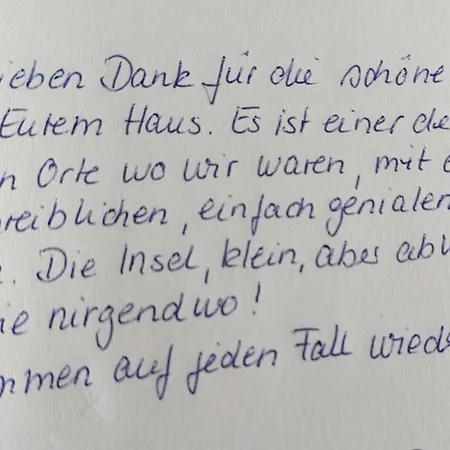 ieben Dank für die schöne
Eurem Haus. Es ist einer de
n Orte wo wir waren, mit e
reiblichen, einfach genialen
. Die Insel, klein, aber abw
ie nirgendwo!
mmen auf jeden Fall wied